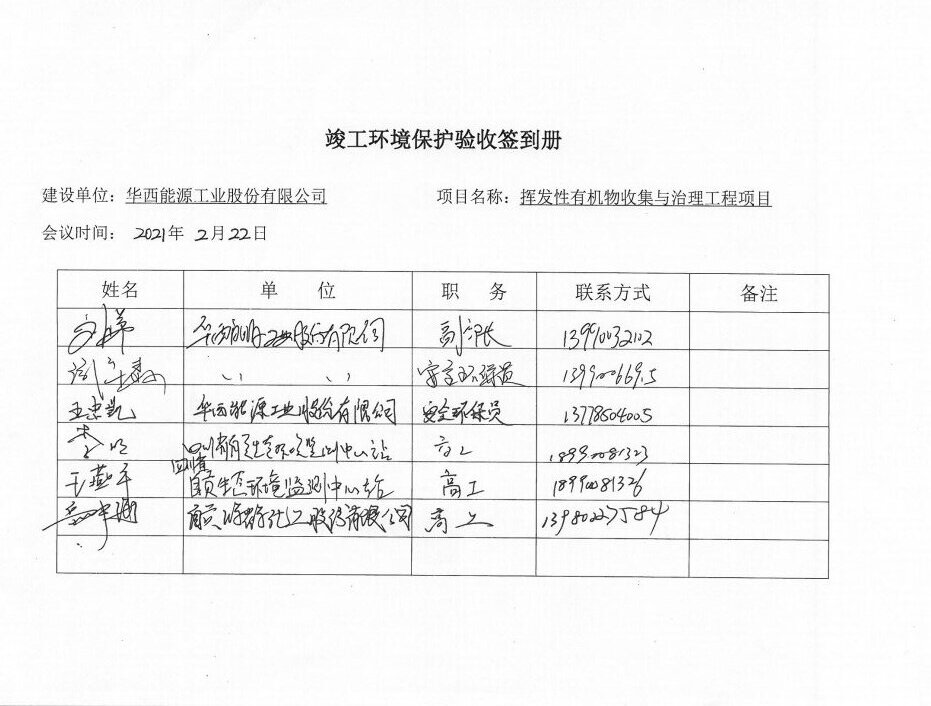 竣工环境保护验收签到册
建设单位：华西能源工业股份有限公司 项目名称：挥发性有机物收集与治理工程项目
会议时间： 2021年 2月22日
姓名 单 位 职 务 联系方式 备注
华西能源工业股份有限公司 副部长 13990032102
〃 〃 安全环保员
王忠凯 华西能源工业股份有限公司 安全环保员 13778504005
李 四川省自贡生态环境监测中心站 高工 18990081323
王燕平 自贡生态环境监测中心站 高工 18990081326
高工 13980227584